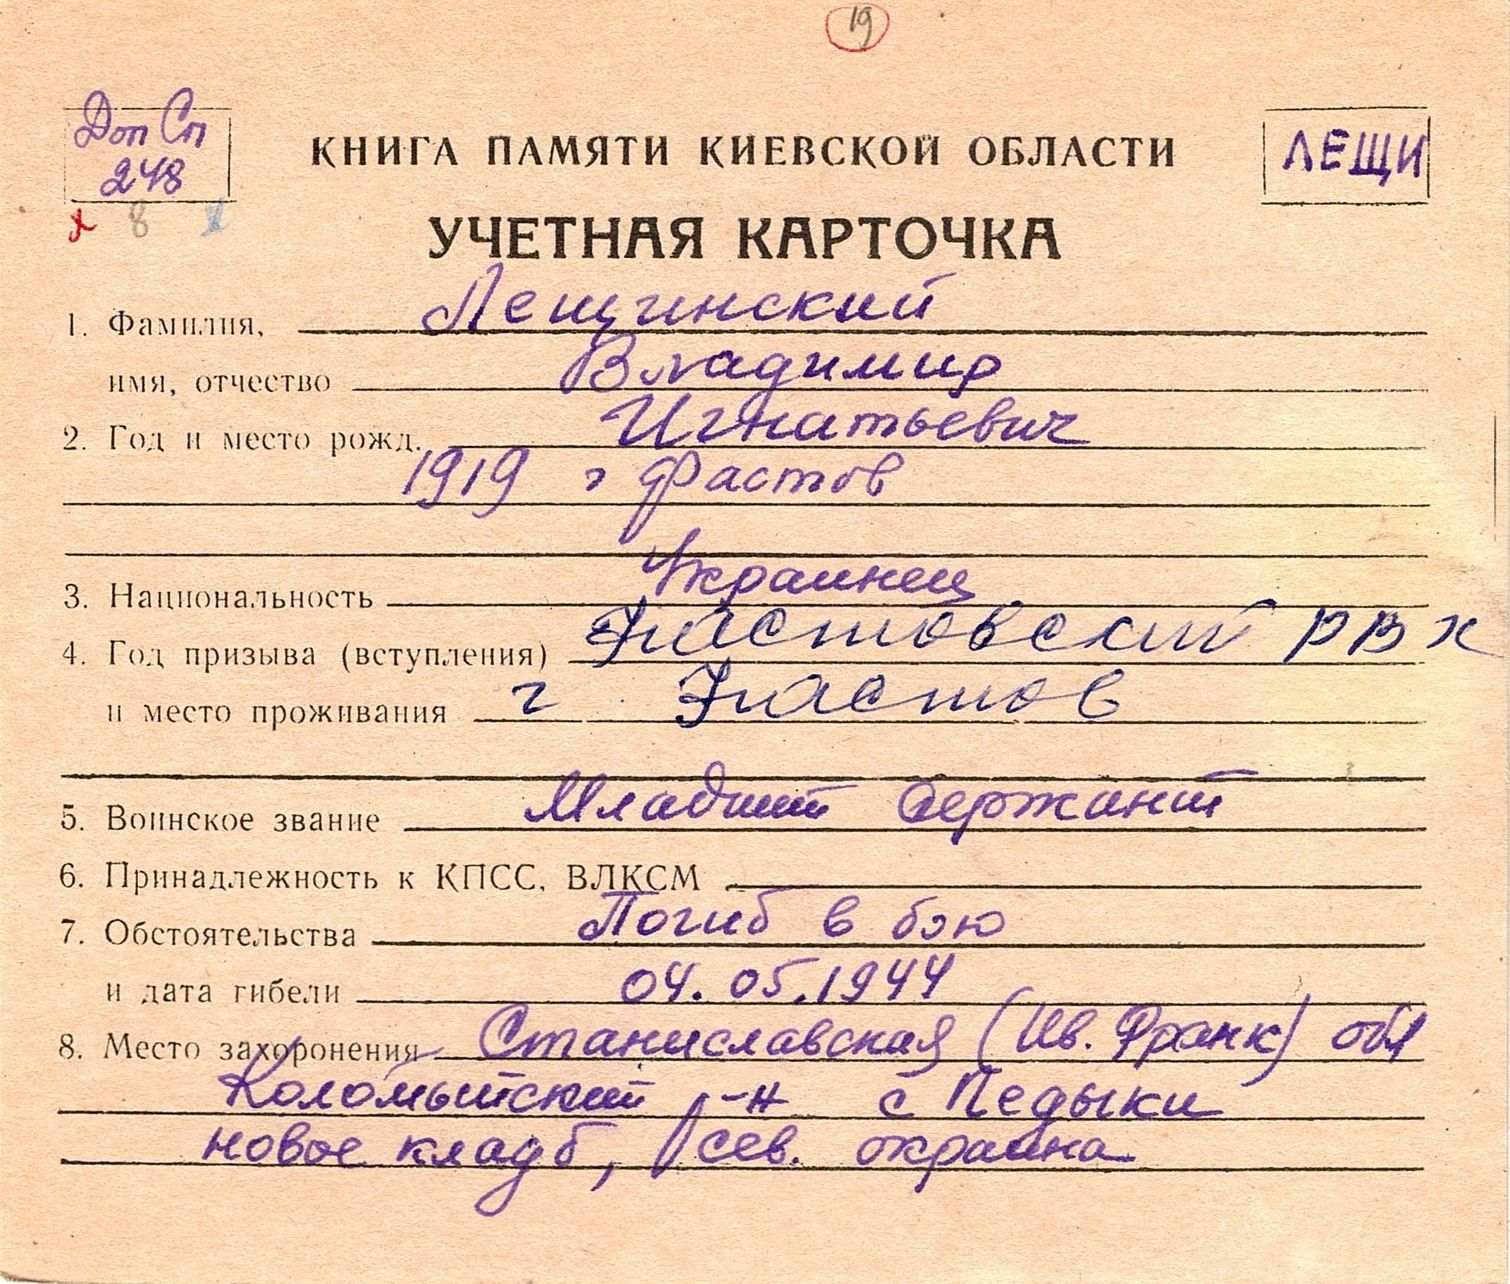 19
Доп Сп
248
8
КНИГА ПАМЯТИ КИЕВСКОЙ ОБЛАСТИ
ЛЕЩИ
УЧЕТНАЯ КАРТОЧКА
1. Фамилия, Лещинский
имя, отчество Владимир
Игнатьевич
2. Год и место рожд.
1919 г Фастов
3. Национальность Украинец
4. Год призыва (вступления) Фастовский РВК
и место проживания г Фастов
5. Воинское звание Младший сержант
6. Принадлежность к КПСС, ВЛКСМ
7. Обстоятельства Погиб в бою
и дата гибели 04.05.1944
8. Место захоронения Станиславская (Ив. Франк) обл
Коломыйский р-н с Педыки
новое кладб, сев. окраина